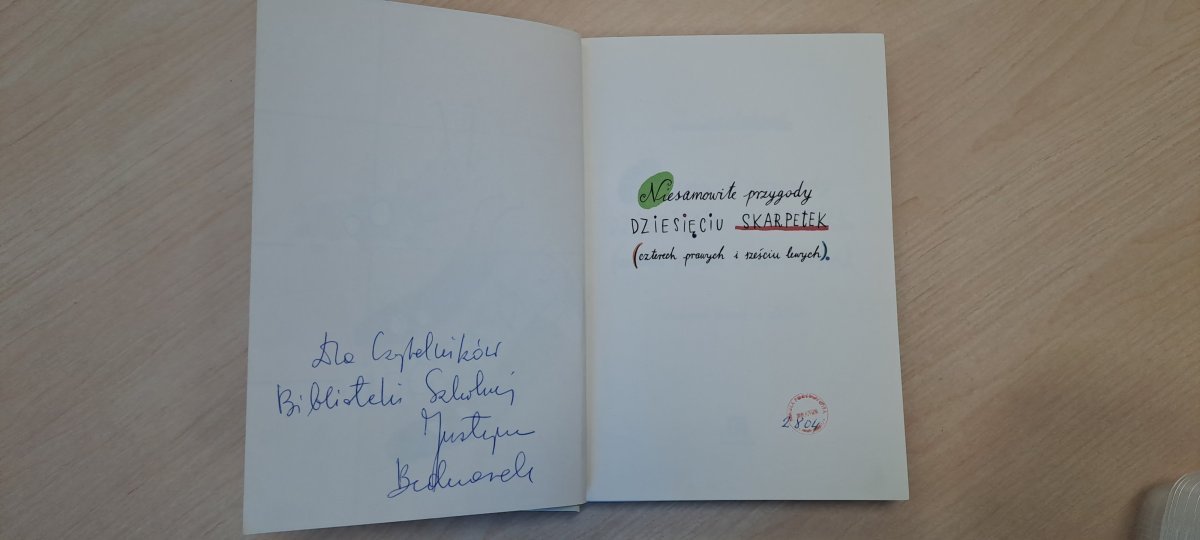 Dla Czytelników
Biblioteki Szkolnej
Justyna
Bednarek
Niesamowite przygody
DZIESIĘCIU SKARPETEK
(czterech prawych i sześciu lewych).
2804